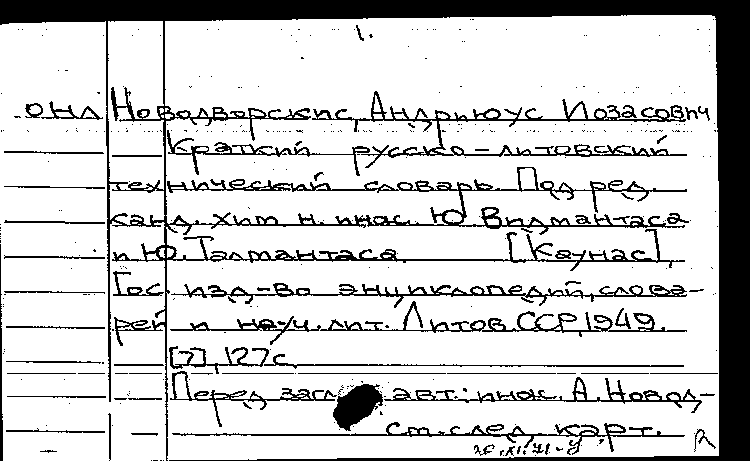 1.
ОНЛ Новодворскис, Андриюус Иозасович
Краткий русско-литовский
технический словарь. Под ред.
канд. хим. н. инж. Ю Видмантаса
и Ю. Талмантаса [Каунас],
Гос. изд-во энциклопедий, слова-
рей и науч. лит. Литов. ССР, 1949.
[7], 127с.
Перед загл авт.: инж. А. Новод-
см. след. карт.